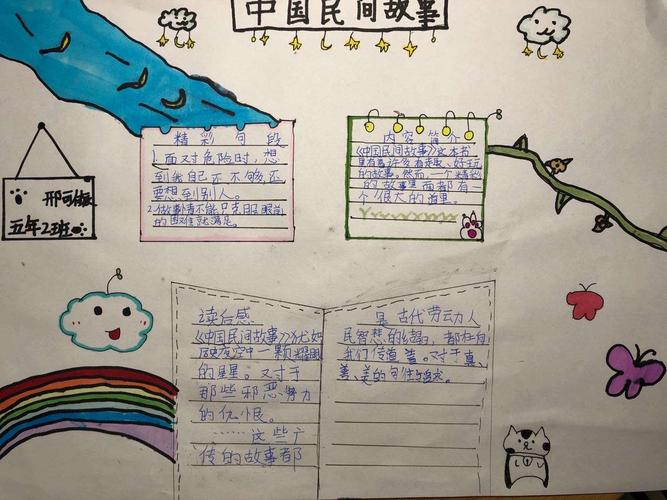 中国民间故事
精彩句段
1.面对危险时,想
到我自己还不够,还
要想到别人。
2.做事情不能只克服眼前
的困难就满足。
内容简介
《中国民间故事》这本书
里有着许多有趣、好玩
的故事。然而一个精彩
的故事里面都有一
个很大的道理。
邢可
五年2班
读后感
《中国民间故事》犹如
夜空中一颗耀眼
的星星。对于
那些邪恶势力
的仇恨。
……这些广
传的故事都
是古代劳动人
民智慧的结晶,都在向
我们传道善。对于真、
善、美的向往与追求。